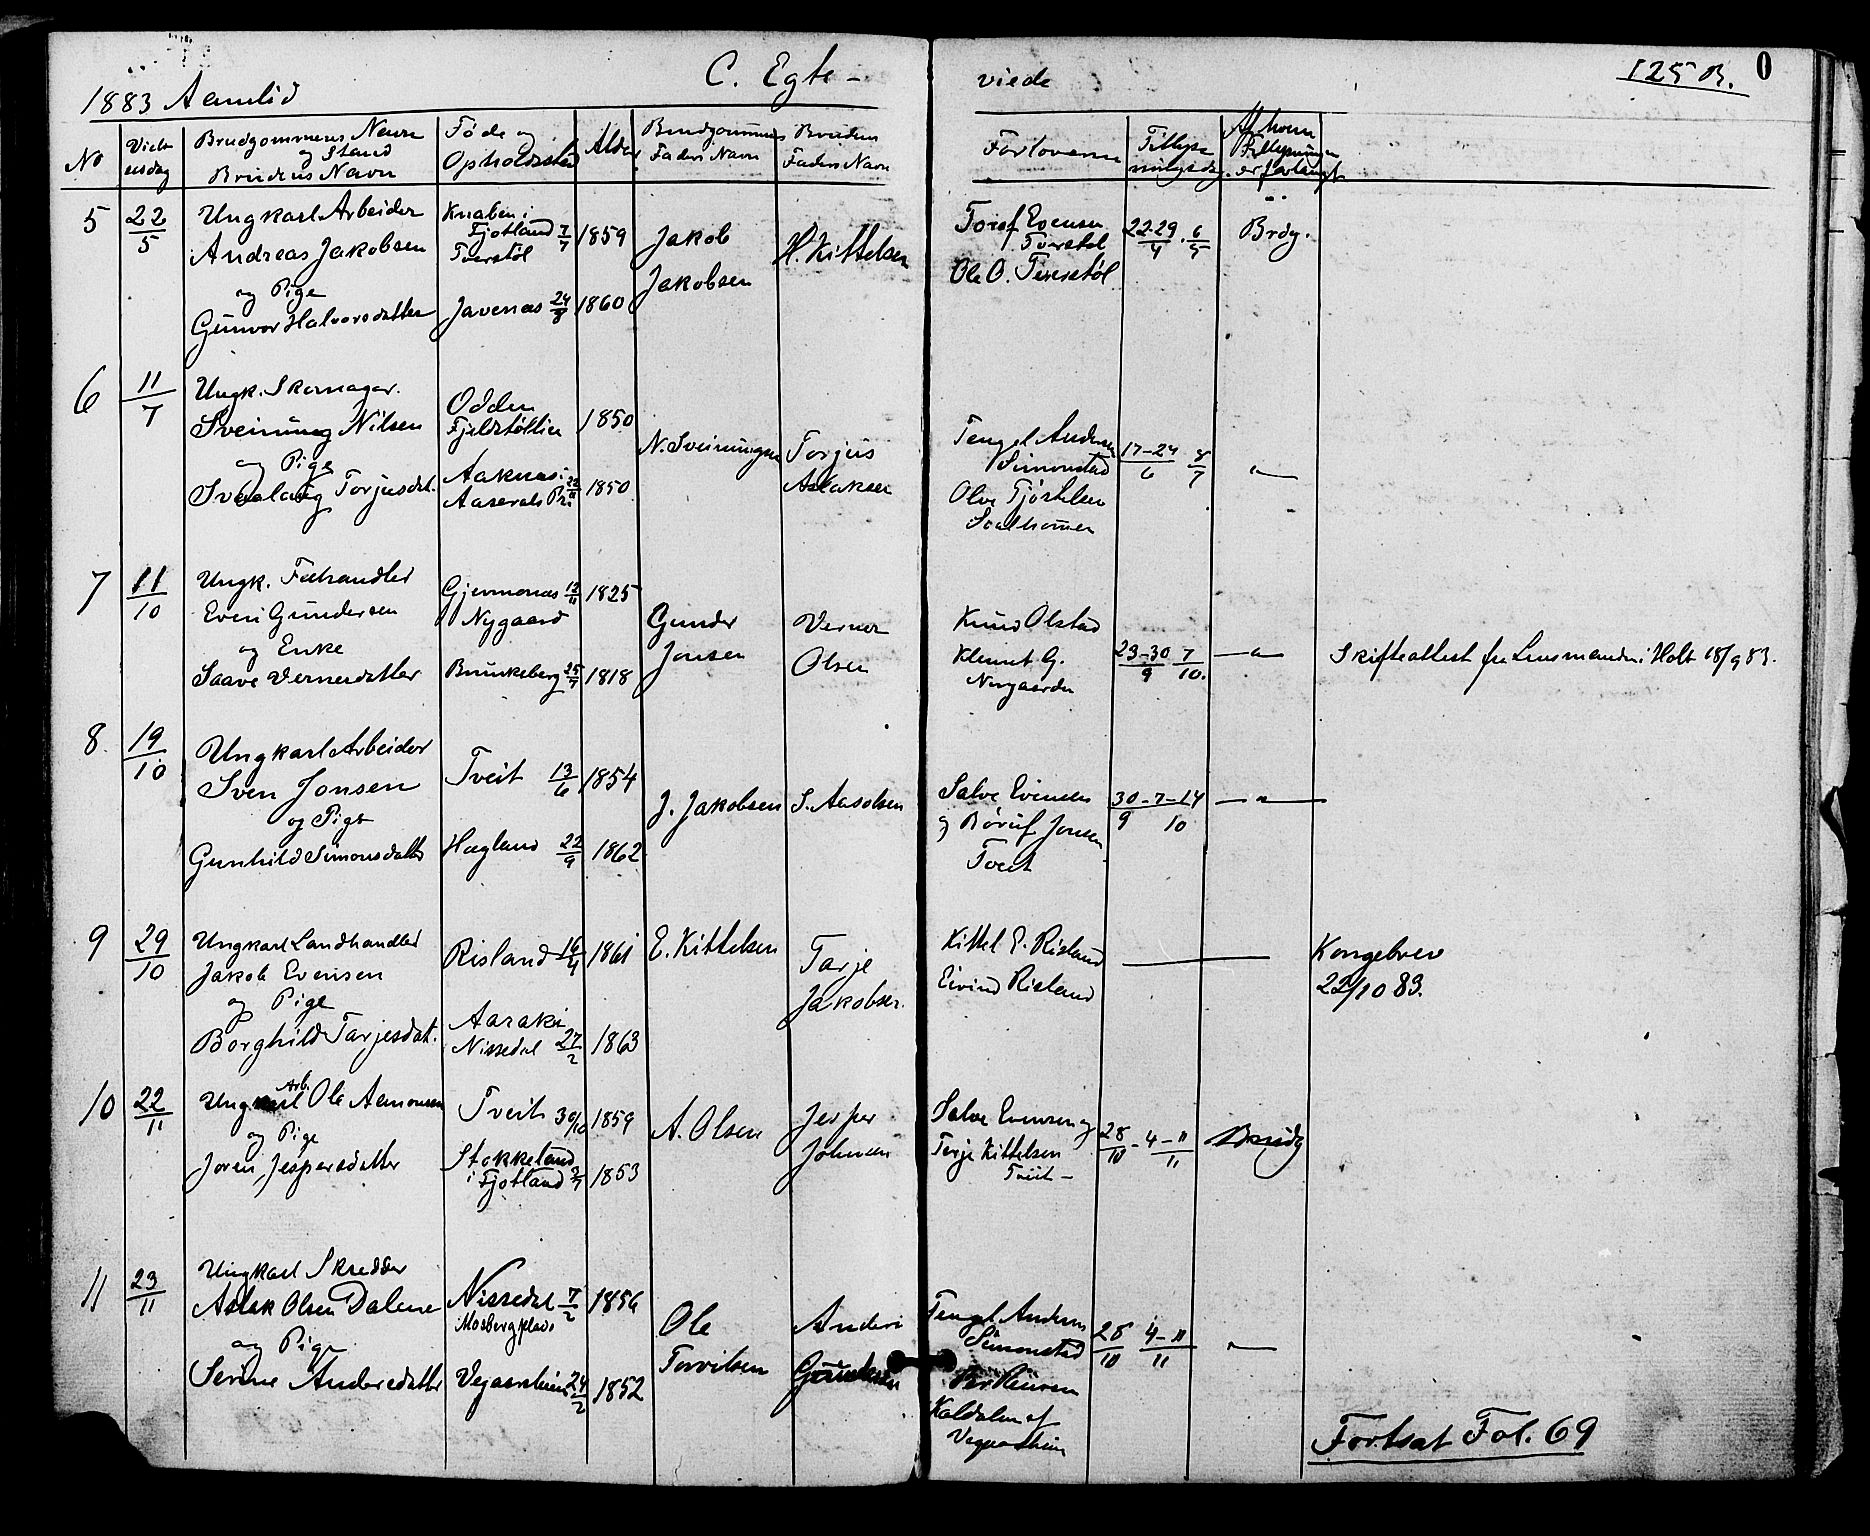 1883 Aamlid
C. Egte-
viede
125 B.
0
No
Viel-
sesdag
Brudgommens Navn
og Stand
Brudens Navn
Føde og
Opholdssted
Alder
Brudgommens
Faders Navn
Brudens
Faders Navn
Forloverne
Tillys-
ningsdag
Af hvem
Tillysningen
er forlangt
5
22/5
Ungkarl Arbeider
Andreas Jakobsen
og Pige
Gunvor Halvorsdatter
Knaben i
Fjotland 7/7
Tverstøl
Javenæs 24/8
1859
1860
Jakob
Jakobsen
H. Kittelsen
Torjef Evensen
Tverstøl
Ole O. Tverstøl
22.29/4 . 6/5
Brdg.
6
11/7
Ungk. Skomager.
Sveinung Nilsen
og Pige
Svalaug Torjusdat.
Odden
Fjeldstøllien
Aaknes i
Aaserals Pr.
1850
1850
N. Sveinungsen
Torjus
Aslaksen
Tengel Anders
Simonstad
Olve Tjøstelsen
Svalhomen
17-24/6 8/7
-"-
7
11/10
Ungk. Fæhandler
Even Gundersen
og Enke
Saave Vernersdatter
Gjermonæs 12/11
Nygaard
Brunkeberg 25/7
1825
1818
Gunder
Jonsen
Verner
Olsen
Knud Olstad
Klemet G.
Nergaarden
23-30/9 7/10.
-"-
Skifteattest fra Lensmanden i Holt 18/9 83.
8
19/10
Ungkarl Arbeider
Sven Jonsen
og Pige
Gunhild Simonsdatter
Tveit 13/6
Hægland 22/9
1854
1862
J. Jakobsen
S. Aasolsen
Salve Evensen
og Børuf Jonsen
Tveit
30/9 - 7-14/10
-"-
9
29/10
Ungkarl Landhandler
Jakob Evensen
og Pige
Borghild Tarjesdat.
Risland 16/4
Aarak i
Nissedal 27/2
1861
1863
E. Kittelsen
Tarje
Jakobsen
Kittel E. Risland
Eivind Risland
Kongebrev
22/10 83.
10
22/11
Arb.
Ungkarl Ole Aamonsen
og Pige
Joren Jespersdatter
Tveit 30/10
Stokkeland
i Fjotland 3/7
1859
1853
A. Olsen
Jesper
Johnsen
Salve Evensen og
Terje Kittelsen
Tveit -
28/10 - 4-11/11
Brudg
11
23/11
Ungkarl Skredder
Aslak Olsen Dalene
og Pige
Serine Andersdatter
Nissedal 7/2
Mosberg plads
Vegaarsheien 24/2
1856
1852
Ole
Torvilsen
Anders
Gundersen
Tengel Anders
Simonstad
Kaldalen af
Vegaarsheien
28/10 4-11/11
-"-
Fortsat Fol. 69